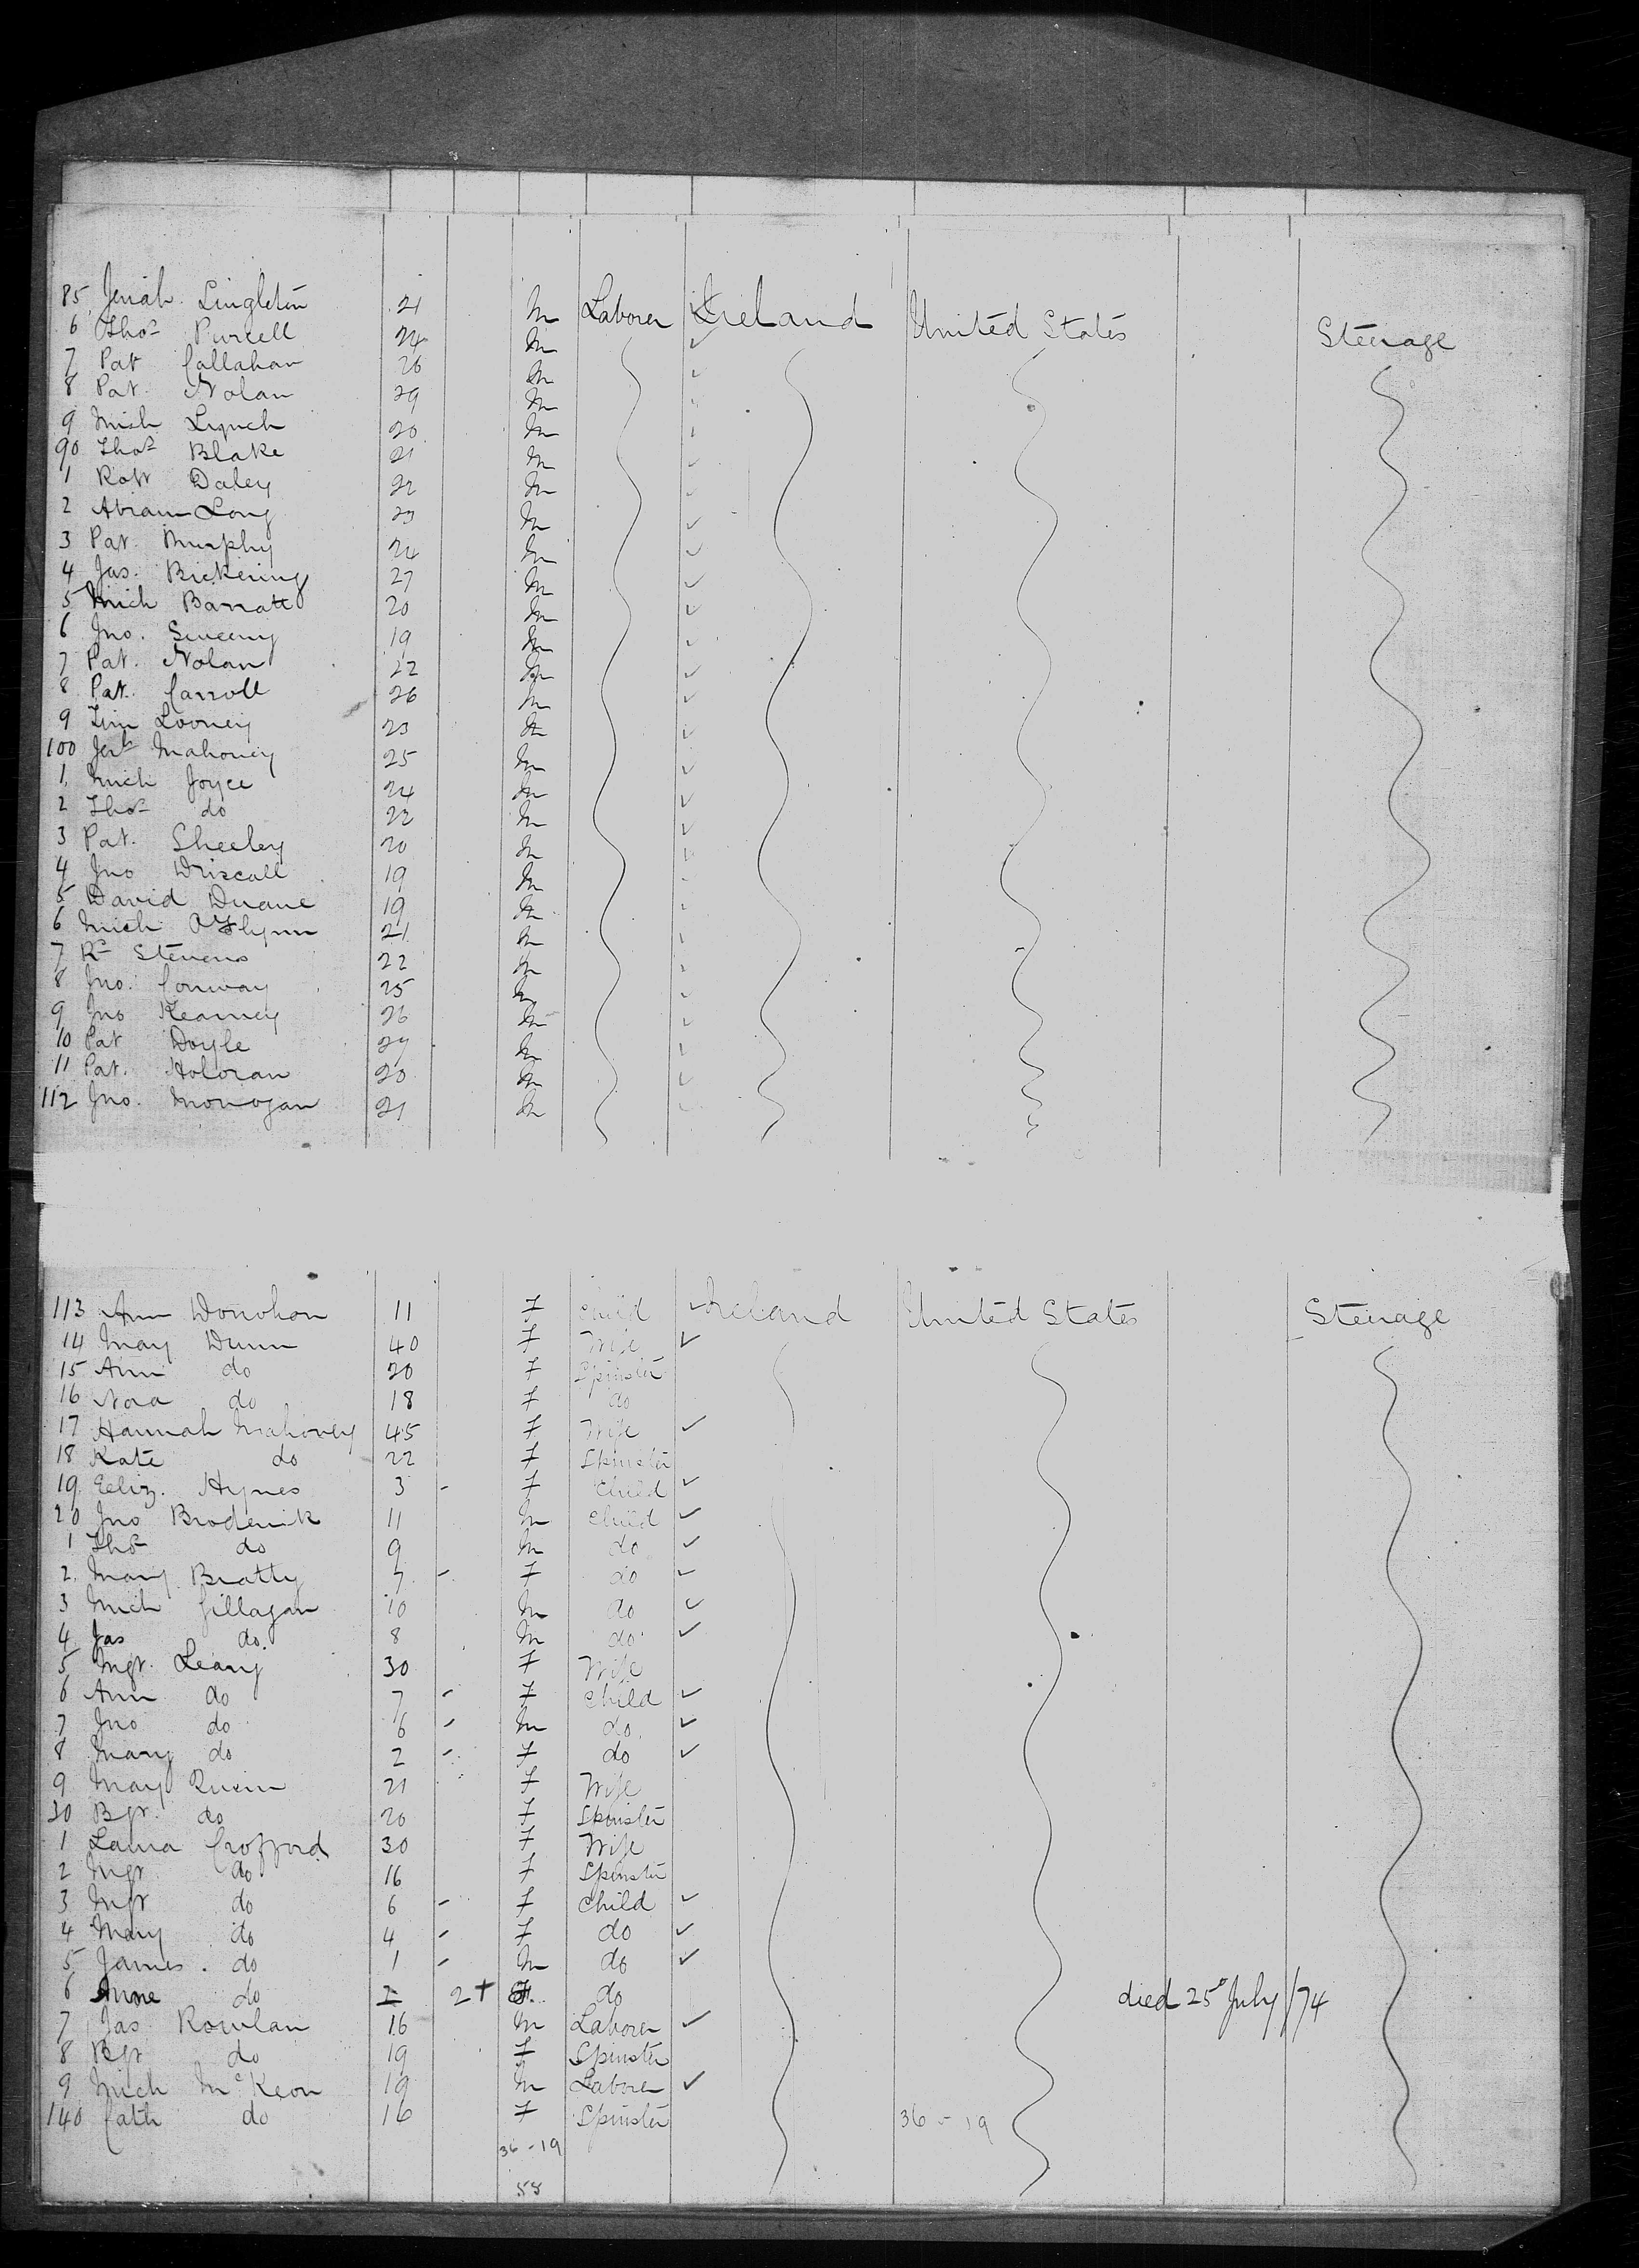 85 Jeriah Singleton 21 M Laborer Ireland United States Steerage
6 Thos Purcell 24 M
7 Pat Callahan 26 M
8 Pat. Nolan 29 M
9 Mich Lynch 20 M
90 Thos Blake 21 M
1 Robt Daley 22 M
2 Abram Long 23 M
3 Pat. Murphy 24 M
4 Jas. Bickering 27 M
5 Mich Barratt 20 M
6 Jno. Sweeny 19 M
7 Pat. Nolan 22 M
8 Pat. Carroll 26 M
9 Tim Looney 23 M
100 Jerh Mahoney 25 M
1 Mich Joyce 24 M
2 Thos do 22 M
3 Pat. Sheeley 20 M
4 Jno Driscoll 19 M
5 David Duane 19 M
6 Mich O'Flynn 21 M
7 Rd Stevens 22 M
8 Jno. Conway 25 M
9 Jno Kearney 26 M
10 Pat Doyle 27 M
11 Pat. Holoran 20 M
112 Jno. Monogan 21 M
113 Ann Donohon 11 F Child Ireland United States Steerage
14 Mary Dunn 40 F Wife
15 Ann do 20 F Spinster
16 Nora do 18 F do
17 Hannah Mahoney 45 F Wife
18 Kate do 22 F Spinster
19 Eliz. Hynes 3 - F Child
20 Jno Broderick 11 M Child
1 Thos do 9 M do
2 Mary Bratty 7 - F do
3 Mich Gillagan 10 M do
4 Jas do. 8 M do
5 Mgt. Leary 30 F Wife
6 Ann do 7 - F Child
7 Jno do 6 - M do
8 Mary do 2 - F do
9 Mary Quinn 21 F Wife
30 Bgt. do 20 F Spinster
1 Laura Crofford 30 F Wife
2 Mgt do 16 F Spinster
3 Mgt do 6 - F Child
4 Mary do 4 - F do
5 James. do 1 - M do
6 Anne do 2 2+ F. do died 25th July/74
7 Jas Rowlan 16 M Laborer
8 Bgt do 19 F Spinster
9 Mich McKeon 19 M Laborer
140 Cath do 16 F Spinster 36-19
36-19